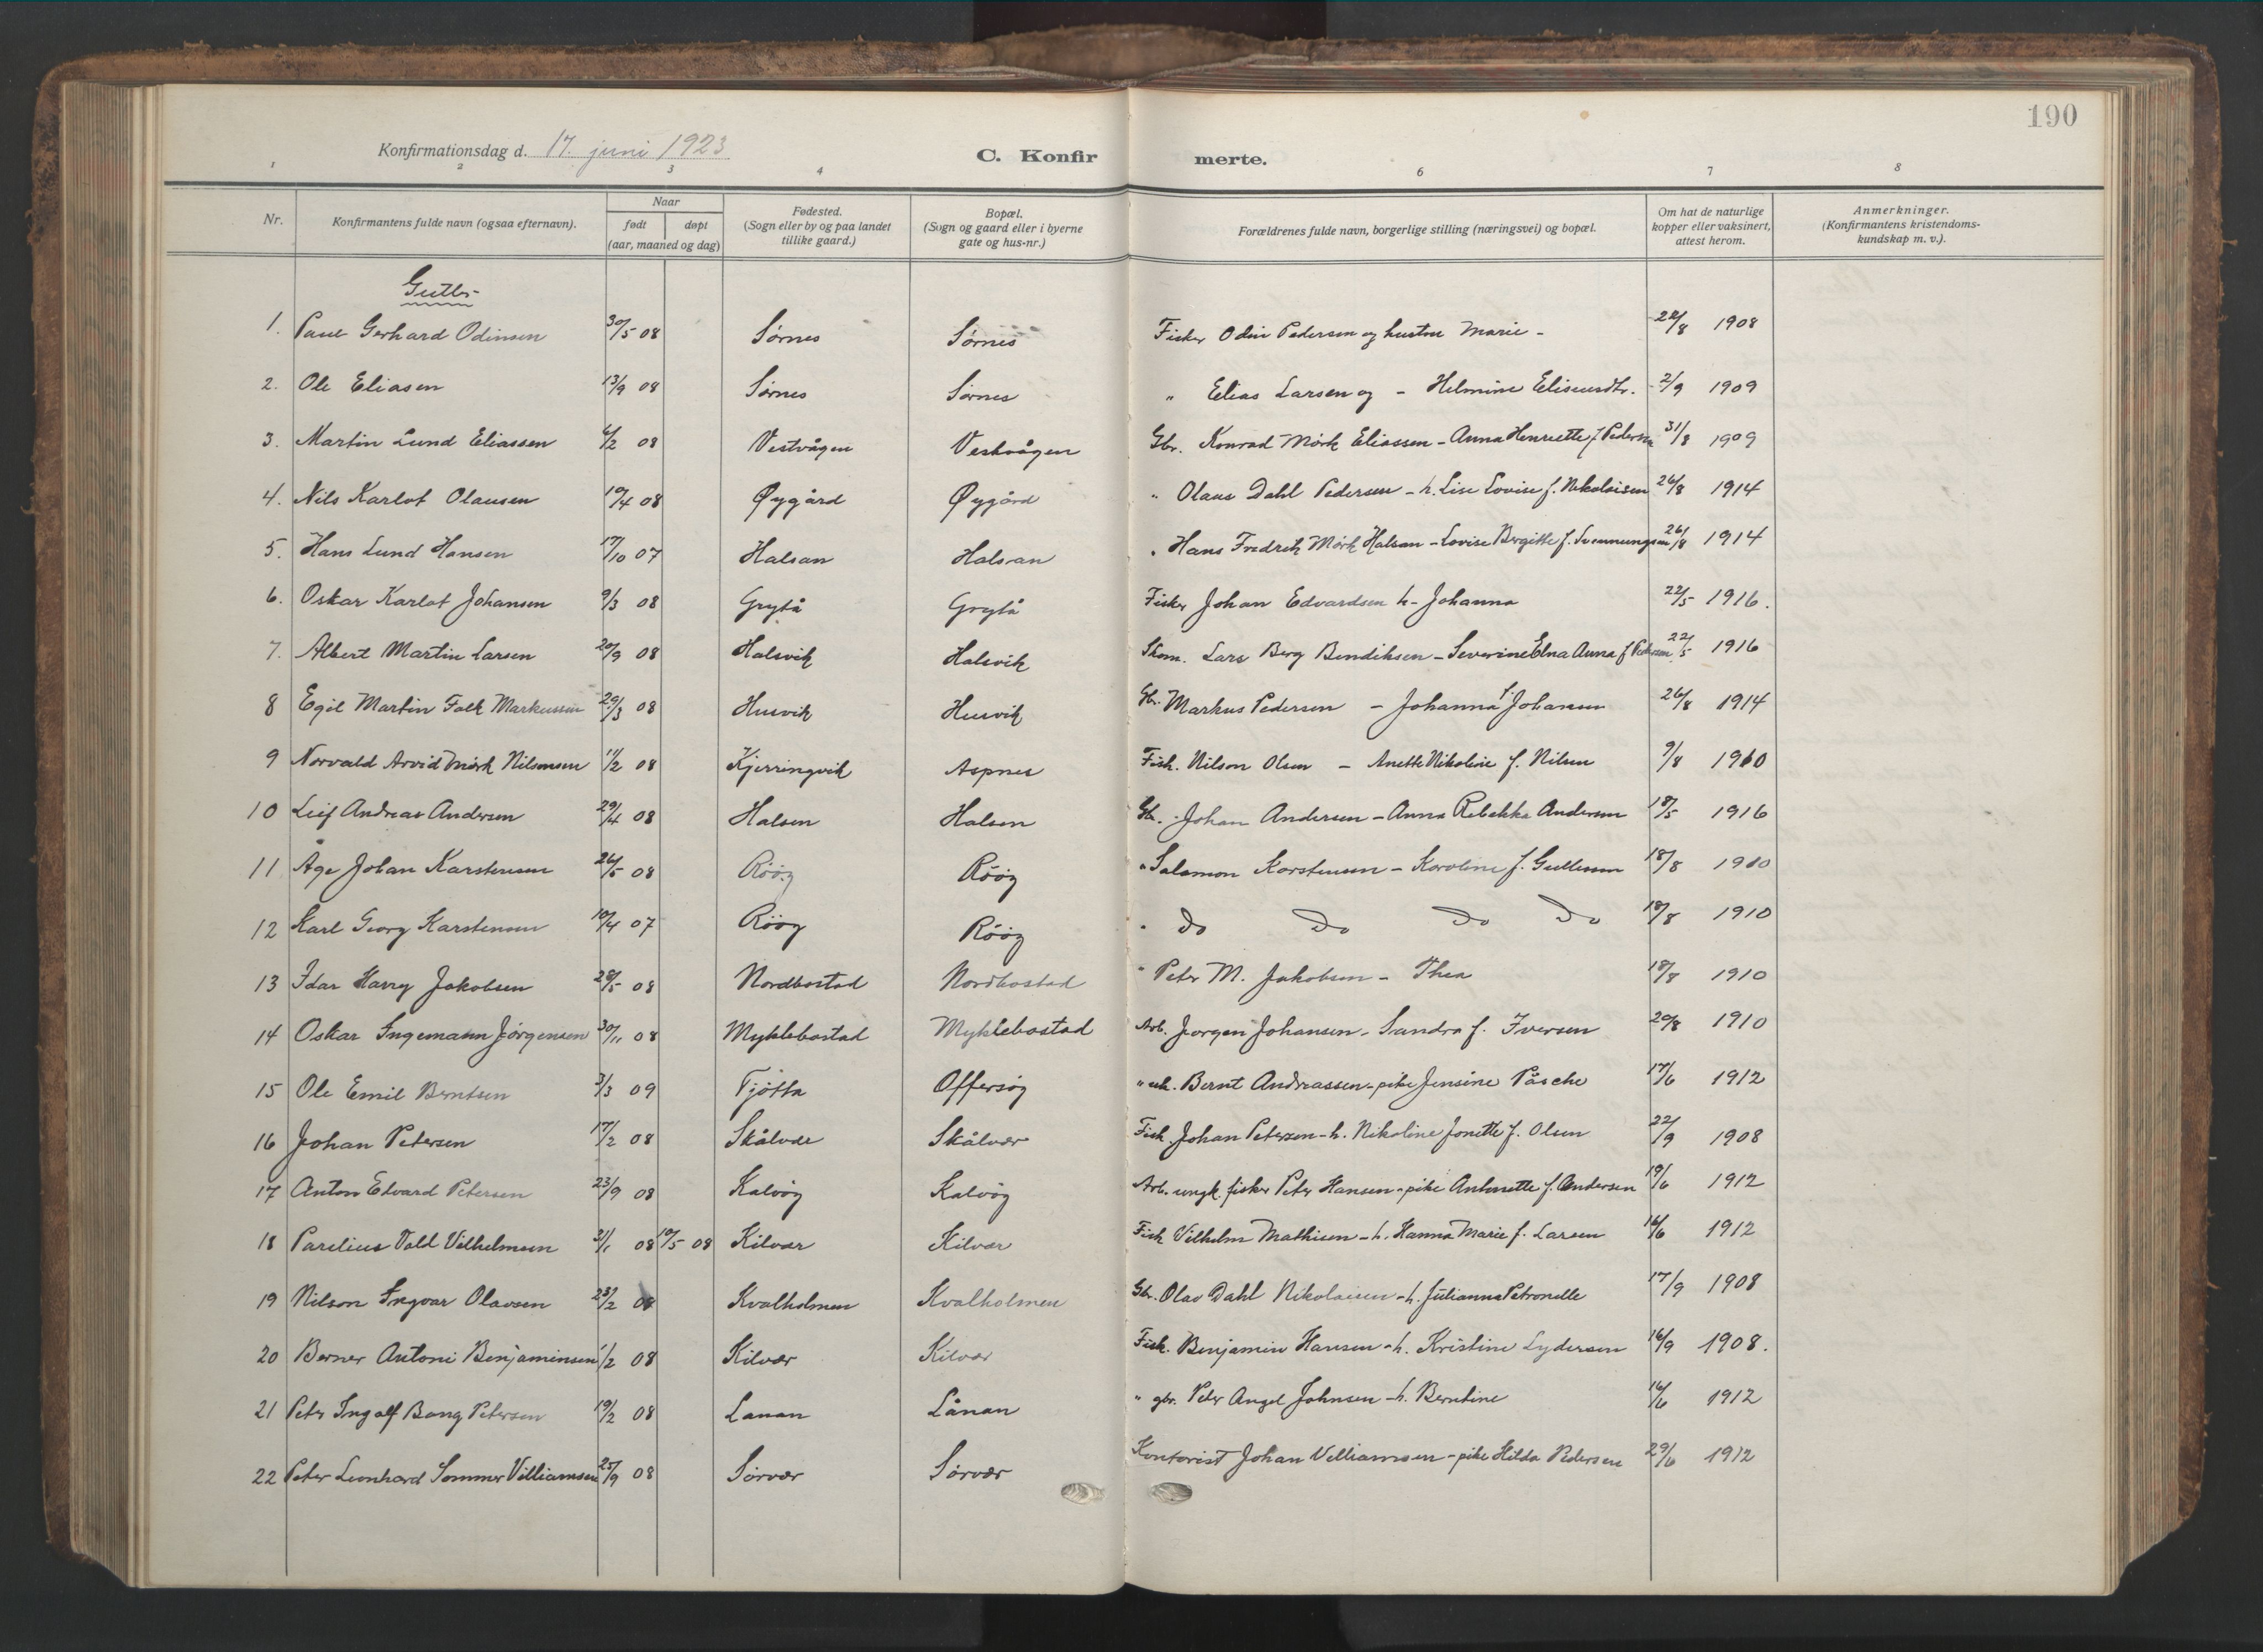 190
Konfirmationsdag d. 17. juni 1923
C. Konfir merte.
1 2 3 4 6 7 8
Nr. Konfirmantens fulde navn (ogsaa efternavn). Naar født døpt (aar, maaned og dag) Fødested. (Sogn eller by og paa landet tillike gaard.) Bopæl. (Sogn og gaard eller i byerne gate og hus-nr.) Forældrenes fulde navn, borgerlige stilling (næringsvei) og bopæl. Om hat de naturlige kopper eller vaksinert, attest herom. Anmerkninger. (Konfirmantens kristendoms-kundskap m. v.).
Gutter
1. Paul Gerhard Odinsen 30/5 08 Sørnes Sørnes Fisker Odin Pedersen og hustru Marie - 1908
2. Ole Eliasen 13/9 08 Sørnes Sørnes " Elias Larsen og - Helmine Eliseusdtr. 2/9 1909
3. Martin Lund Eliassen 08 Vestvågen Vestvågen Gbr. Konrad Mörk Eliassen - Anna Henriette f Pedersen 31/8 1909
4. Nils Karlot Olausen 10/4 08 Øygård Øygård " Olaus Dahl Pedersen - h. Lise Lovise f. Nikolaisen 26/8 1914
5. Hans Lund Hansen 17/10 07 Halsan Halsan " Hans Fredrik Mörk Halsan - Lovise Bergitte f. Svenningsen 26/8 1914
6. Oskar Karlot Johansen 9/3 08 Grytå Grytå Fisker Johan Edvardsen h- Johanna 22/5 1916.
7. Albert Martin Larsen 20/9 08 Halsvik Halsvik Skom. Lars Berg Bendiksen - Severine Elna Anna f Pedersen 22/5 1916
8 Egil Martin Falk Markussen 29/3 08 Husvik Husvik Gbr. Markus Pedersen - Johanna f. Johansen 26/8 1914
9 Norvald Arvid Mörk Nilsonsen 11/2 08 Kjerringvik Aspnes Fisk. Nilson Olsen - Anette Nikoline f. Nilsen 9/8 1910
10 Leif Andreas Andersen 29/4 08 Halsen Halsen Gb. Johan Andersen - Anna Rebekka Andersen 18/5 1916
11 Åge Johan Karstensen 26/5 08 Röög Röög " Salomon Karstensen - Karoline f. Gullesen 18/8 1910
12 Karl Georg Karstensen 10/4 07 Röög Röög " Do Do Do Do 18/8 1910
13 Idar Harry Jakobsen 28/5 08 Nordbostad Nordbostad " Peter M. Jakobsen - Thea 18/8 1910
14 Oskar Ingemann Jörgensen 30/11 08 Myklebostad Myklebostad Arb. Jørgen Johansen - Sandra f. Iversen 20/8 1910
15 Ole Emil Berntsen 3/3 09 Tjötta Offersög " Bernt Andreassen - pike Jensine Påsche 17/6 1912
16 Johan Petersen 17/2 08 Skålvær Skålvær Fisk. Johan Petersen - h. Nikoline Jonette f. Olsen 22/9 1908
17 Anton Edvard Petersen 23/9 08 Kalvög Kalvög Arb. ungk. fisker Peter Hansen - pike Antonette f. Andersen 19/6 1912
18 Parelius Vold Vilhelmsen 08 10/5 08 Kilvær Kilvær Fisk Vilhelm Mathisen - h. Hanna Marie f. Larsen 16/6 1912
19 Nilson Ingvar Olavsen 23/2 08 Kvalholmen Kvalholmen Gbr. Olav Dahl Nikolaisen - h. Julianna Petronelle 17/9 1908
20 Berner Antoni Benjaminsen 1/2 08 Kilvær Kilvær Fisk. Benjamin Hansen - h. Kristine Lydersen 16/9 1908.
21 Peter Ingolf Bang Petersen 19/2 08 Lanan Lånan " gbr. Peter Angel Johnsen - h. Berntine 16/6 1912
22 Peter Leonhard Sommer Villiamsen 25/9 08 Sörvær Sörvær Kontorist Johan Velliamsen - pike Hilda Pedersen 29/6 1912